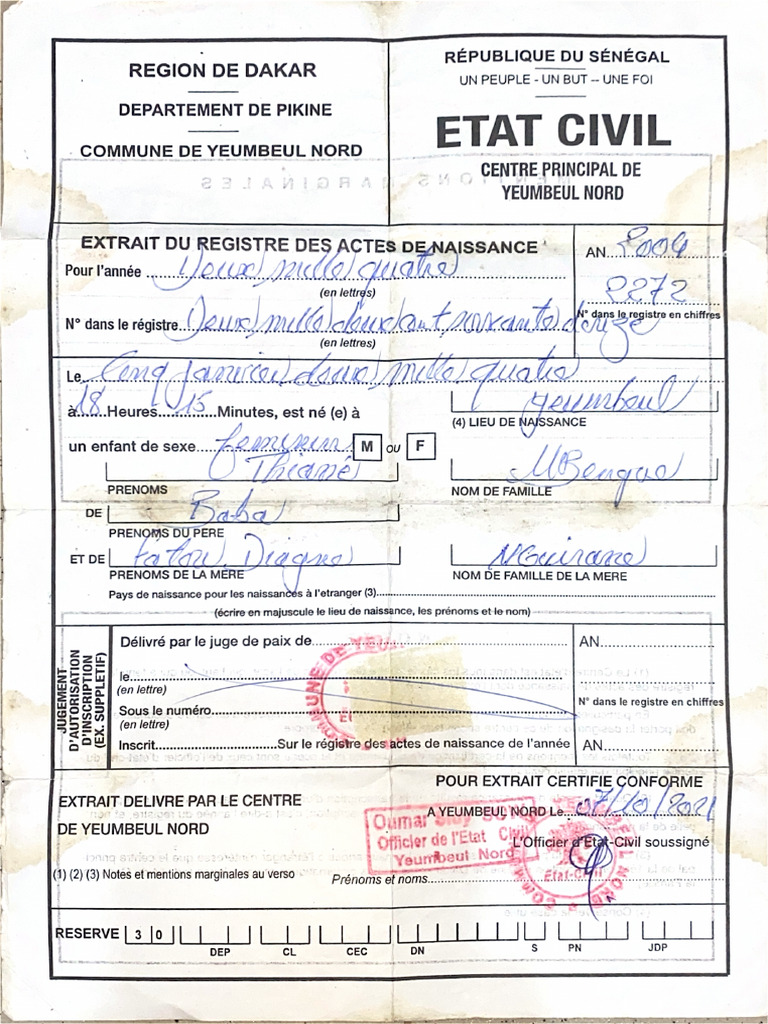 REGION DE DAKAR
DEPARTEMENT DE PIKINE
COMMUNE DE YEUMBEUL NORD
RÉPUBLIQUE DU SÉNÉGAL
UN PEUPLE - UN BUT -- UNE FOI
ETAT CIVIL
CENTRE PRINCIPAL DE
YEUMBEUL NORD
EXTRAIT DU REGISTRE DES ACTES DE NAISSANCE
AN 2004
Pour l'année Deux mille quatre
(en lettres)
2272
N° dans le registre en chiffres
N° dans le régistre Deux mille deux cent soixante douze
(en lettres)
Le Cinq Janvier deux mille quatre
à 18 Heures 15 Minutes, est né (e) à
Yeumbeul
(4) LIEU DE NAISSANCE
un enfant de sexe feminin M OU F
Thiané
PRENOMS
MBengue
NOM DE FAMILLE
DE Baba
PRENOMS DU PERE
ET DE Fatou Diagne
PRENOMS DE LA MERE
NGuirane
NOM DE FAMILLE DE LA MERE
Pays de naissance pour les naissances à l'etranger (3)
(écrire en majuscule le lieu de naissance, les prénoms et le nom)
JUGEMENT
D'AUTORISATION
D'INSCRIPTION
(EX. SUPPLETIF)
Délivré par le juge de paix de
AN
le
(en lettre)
Sous le numéro
(en lettre)
N° dans le registre en chiffres
Inscrit Sur le régistre des actes de naissance de l'année
AN
EXTRAIT DELIVRE PAR LE CENTRE
DE YEUMBEUL NORD
POUR EXTRAIT CERTIFIE CONFORME
A YEUMBEUL NORD Le 07/10/2021
L'Officier d'Etat-Civil soussigné
Oumar
Officier de l'Etat Civil
Yeumbeul Nord
Etat-Civil
(1) (2) (3) Notes et mentions marginales au verso
Prénoms et noms
RESERVE 3 0
DEP CL CEC DN S PN JDP